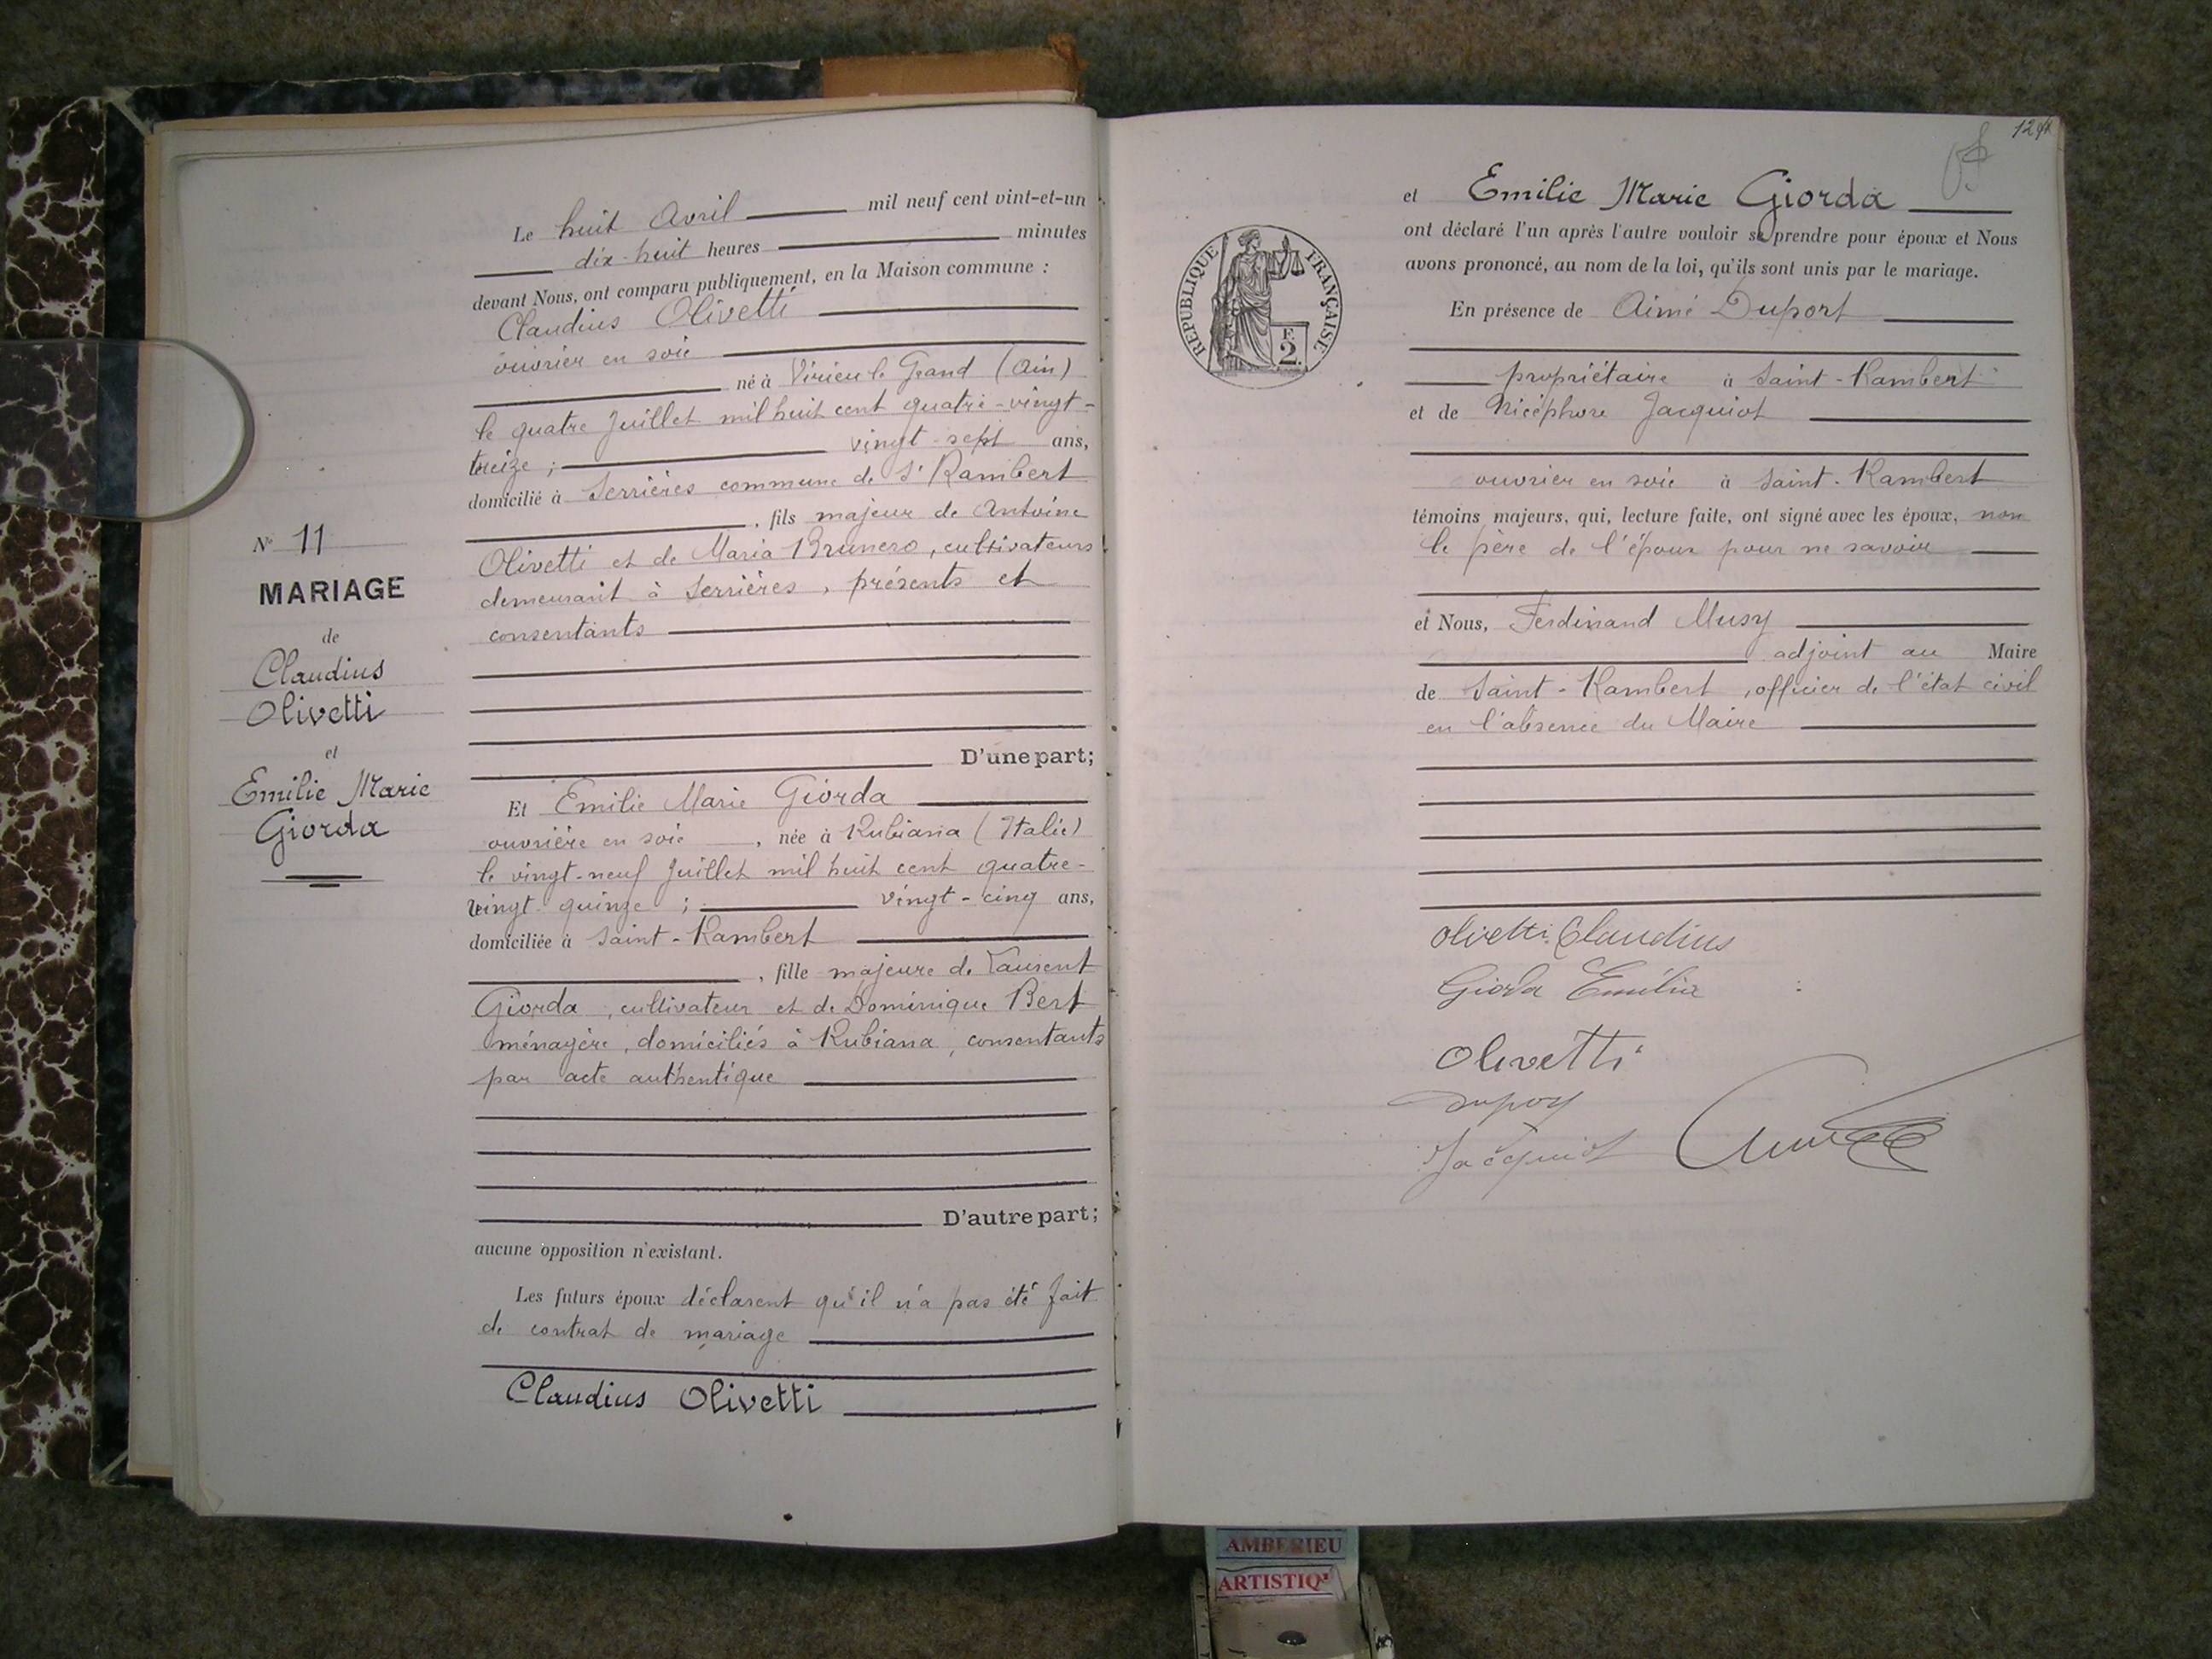 N° 11
MARIAGE
de
Claudius
Olivetti
et
Emilie Marie
Giorda
Le huit Avril mil neuf cent vint-et-un
dix-huit heures minutes
devant Nous, ont comparu publiquement, en la Maison commune :
Claudius Olivetti
ouvrier en soie
né à Virieu le Grand (Ain)
le quatre Juillet mil huit cent quatre-vingt-
treize ; vingt-sept ans,
domicilié à Serrières commune de St Rambert
, fils majeur de Antoine
Olivetti et de Maria Brunero, cultivateurs
demeurant à Serrières, présents et
consentants
D'une part;
Et Emilie Marie Giorda
ouvrière en soie, née à Rubiana (Italie)
le vingt-neuf Juillet mil huit cent quatre-
vingt quinze ; vingt-cinq ans,
domiciliée à Saint-Rambert
, fille majeure de Laurent
Giorda, cultivateur et de Dominique Bert
ménagère, domiciliés à Rubiana, consentants
par acte authentique
D'autre part;
aucune opposition n'existant.
Les futurs époux déclarent qu'il n'a pas été fait
de contrat de mariage
Claudius Olivetti
et Emilie Marie Giorda
ont déclaré l'un après l'autre vouloir se prendre pour époux et Nous
avons prononcé, au nom de la loi, qu'ils sont unis par le mariage.
RÉPUBLIQUE FRANÇAISE
F.
2.
En présence de Aimé Duport
propriétaire à Saint-Rambert
et de Nicéphore Jacquiot
ouvrier en soie à Saint-Rambert
témoins majeurs, qui, lecture faite, ont signé avec les époux, non
le père de l'époux pour ne savoir
et Nous, Ferdinand Musy
adjoint au Maire
de Saint-Rambert, officier de l'état civil
en l'absence du Maire
Olivetti Claudius
Giorda Emilia
Olivetti
Jacquiot
AMBERIEU
ARTISTIQ